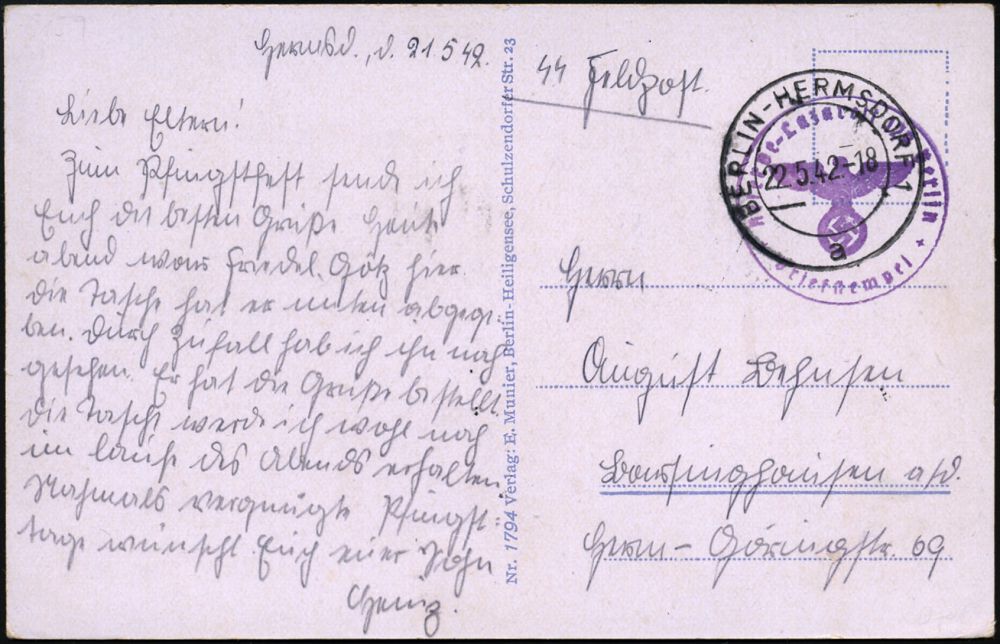 Hermsd., d. 21.5.42.
Liebe Eltern!
Zum Pfingstfest sende ich
Euch die besten Grüße Heute
abend war Friedel Götz hier.
die Tasche hat er unten abgege-
ben. Durch Zufall hab ich ihn noch
gesehen. Er hat die Grüße bestellt.
die Tasche werde ich wohl noch
im laufe des Abends erhalten.
Nochmals vergnügte Pfingst-
tage wünscht Euch euer Sohn
Heinz.
Nr. 1794 Verlag: E. Munier, Berlin-Heiligensee, Schulzendorfer Str. 23
SS Feldpost.
BERLIN-HERMSDORF 1
22.5.42.-18
a
Berlin
Briefstempel
Herrn
August Behnsen
Barsinghausen a/D.
Herm-Göringstr. 69